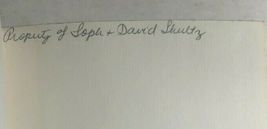 Property of Soph + David Shultz